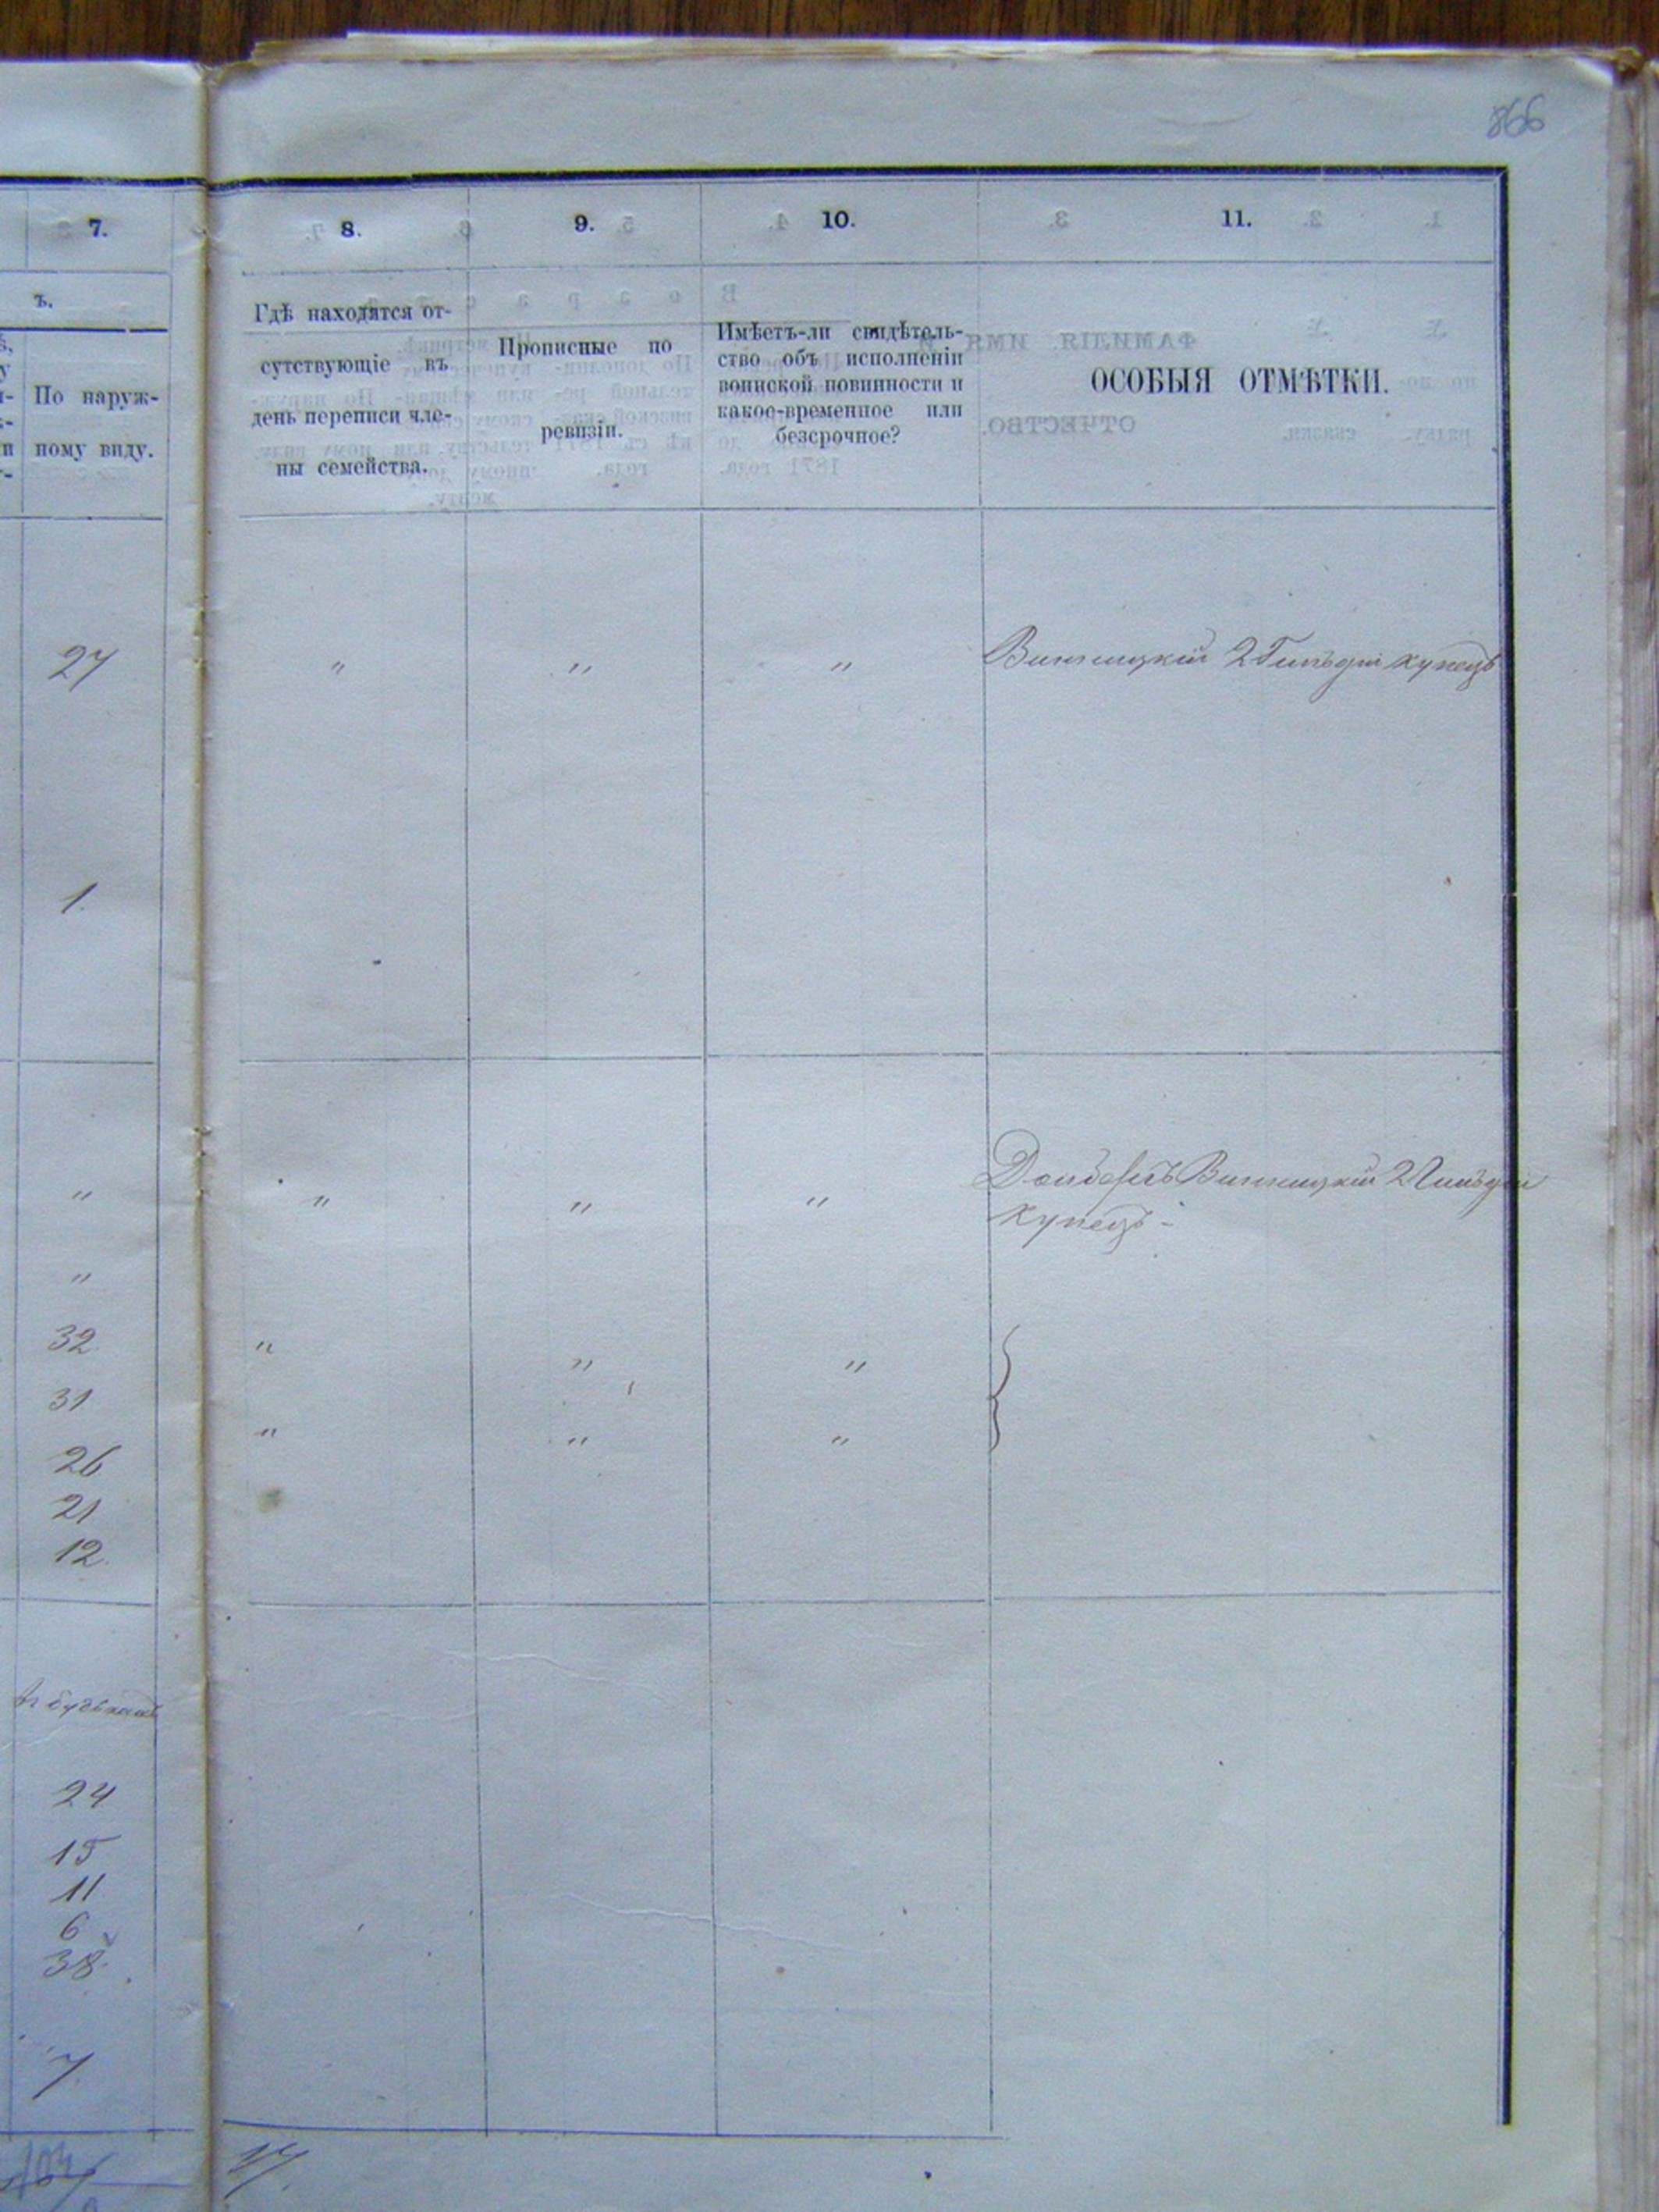 866
7. 8. 9. 10. 11.
ъ.
По наруж-
ному виду.
Гдѣ находятся от-
сутствующіе въ
день переписи чле-
ны семейства.
Прописные по
ревизіи.
Имѣетъ-ли свидѣтель-
ство объ исполненіи
воинской повинности и
какое-временное или
безсрочное?
ОСОБЫЯ ОТМѢТКИ.
27 " " " Винницкій 2 Гильдіи купецъ
1.
" " " " Винницкій 2 Гильдіи
купецъ -
"
32 " " "
31
" " "
26
21
12.
24
15
11
6
38.
7
17.